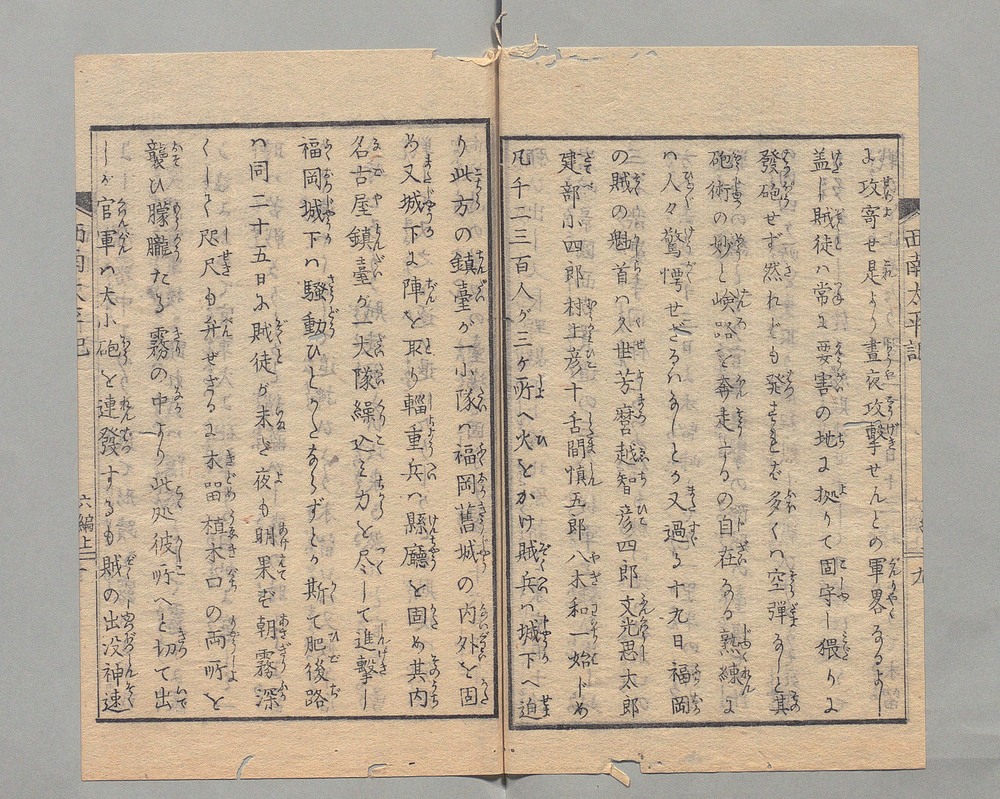 よ攻寄せ是より晝夜攻撃せんとの軍畧なるよし
盖し賊徒ハ常に要害の地に拠りて固守し猥りに
發砲せず然れども発すれバ多くハ空弾なしと其
砲術の妙と嶮路を奔走するの自在なる熟練に
ハ人々驚愕せざるハなしとか又過る十九日福岡
の賊の魁首ハ久世芳麿越智彦四郎文光思太郎
建部小四郎村上彦十舌間慎五郎八木和一始しめ
凡千二三百人が三ヶ所へ火をかけ賊兵ハ城下へ迫
り此方の鎮臺が一小隊ハ福岡舊城の内外を固
め又城下に陣を取り輜重兵ハ縣廳を固め其内
名古屋鎮臺が一大隊繰込ミ力を尽して進撃し
福岡城下ハ騒動ひとかたならずとか斯て肥後路
ハ同二十五日に賊徒が未だ夜も明果ぬ朝霧深
くして咫尺も弁ぜざるに木留植木口の両所を
襲ひ朦朧たる霧の中より此処彼所へと切て出
しが官軍ハ大小砲を連發するも賊の出没神速
西南太平記
九
西南太平記
六編上